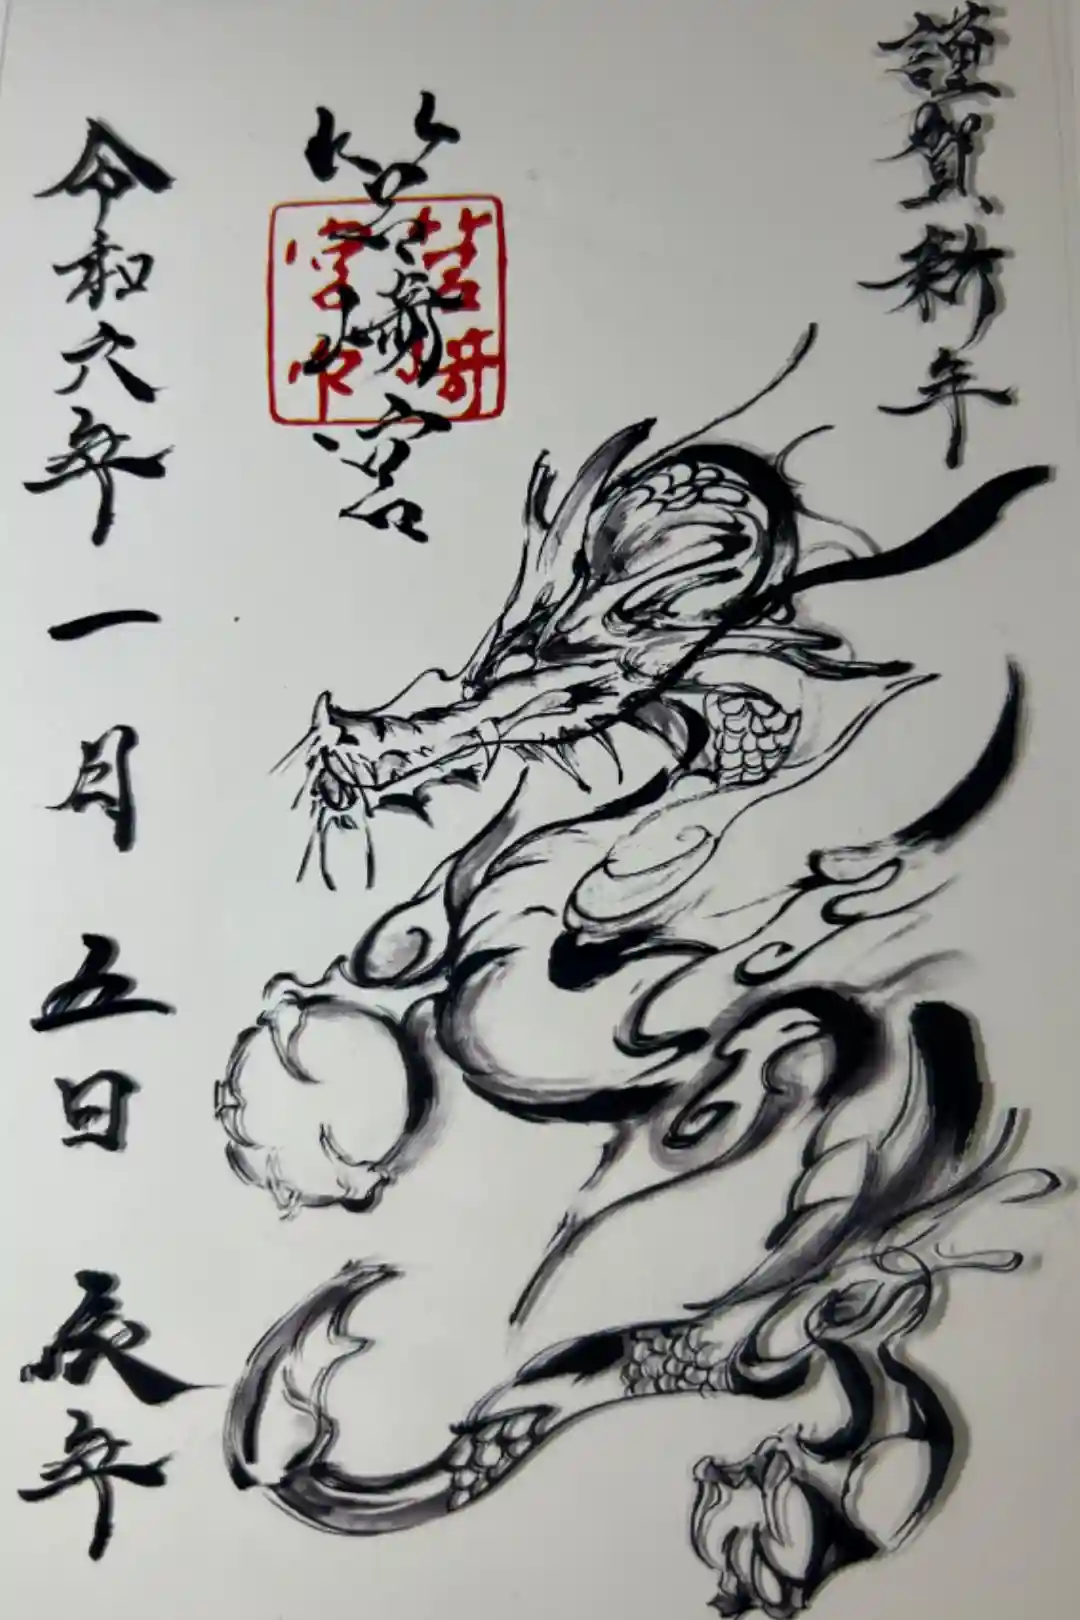 謹賀新年
筥崎宮
筥崎
宮印
令和六年一月五日辰年